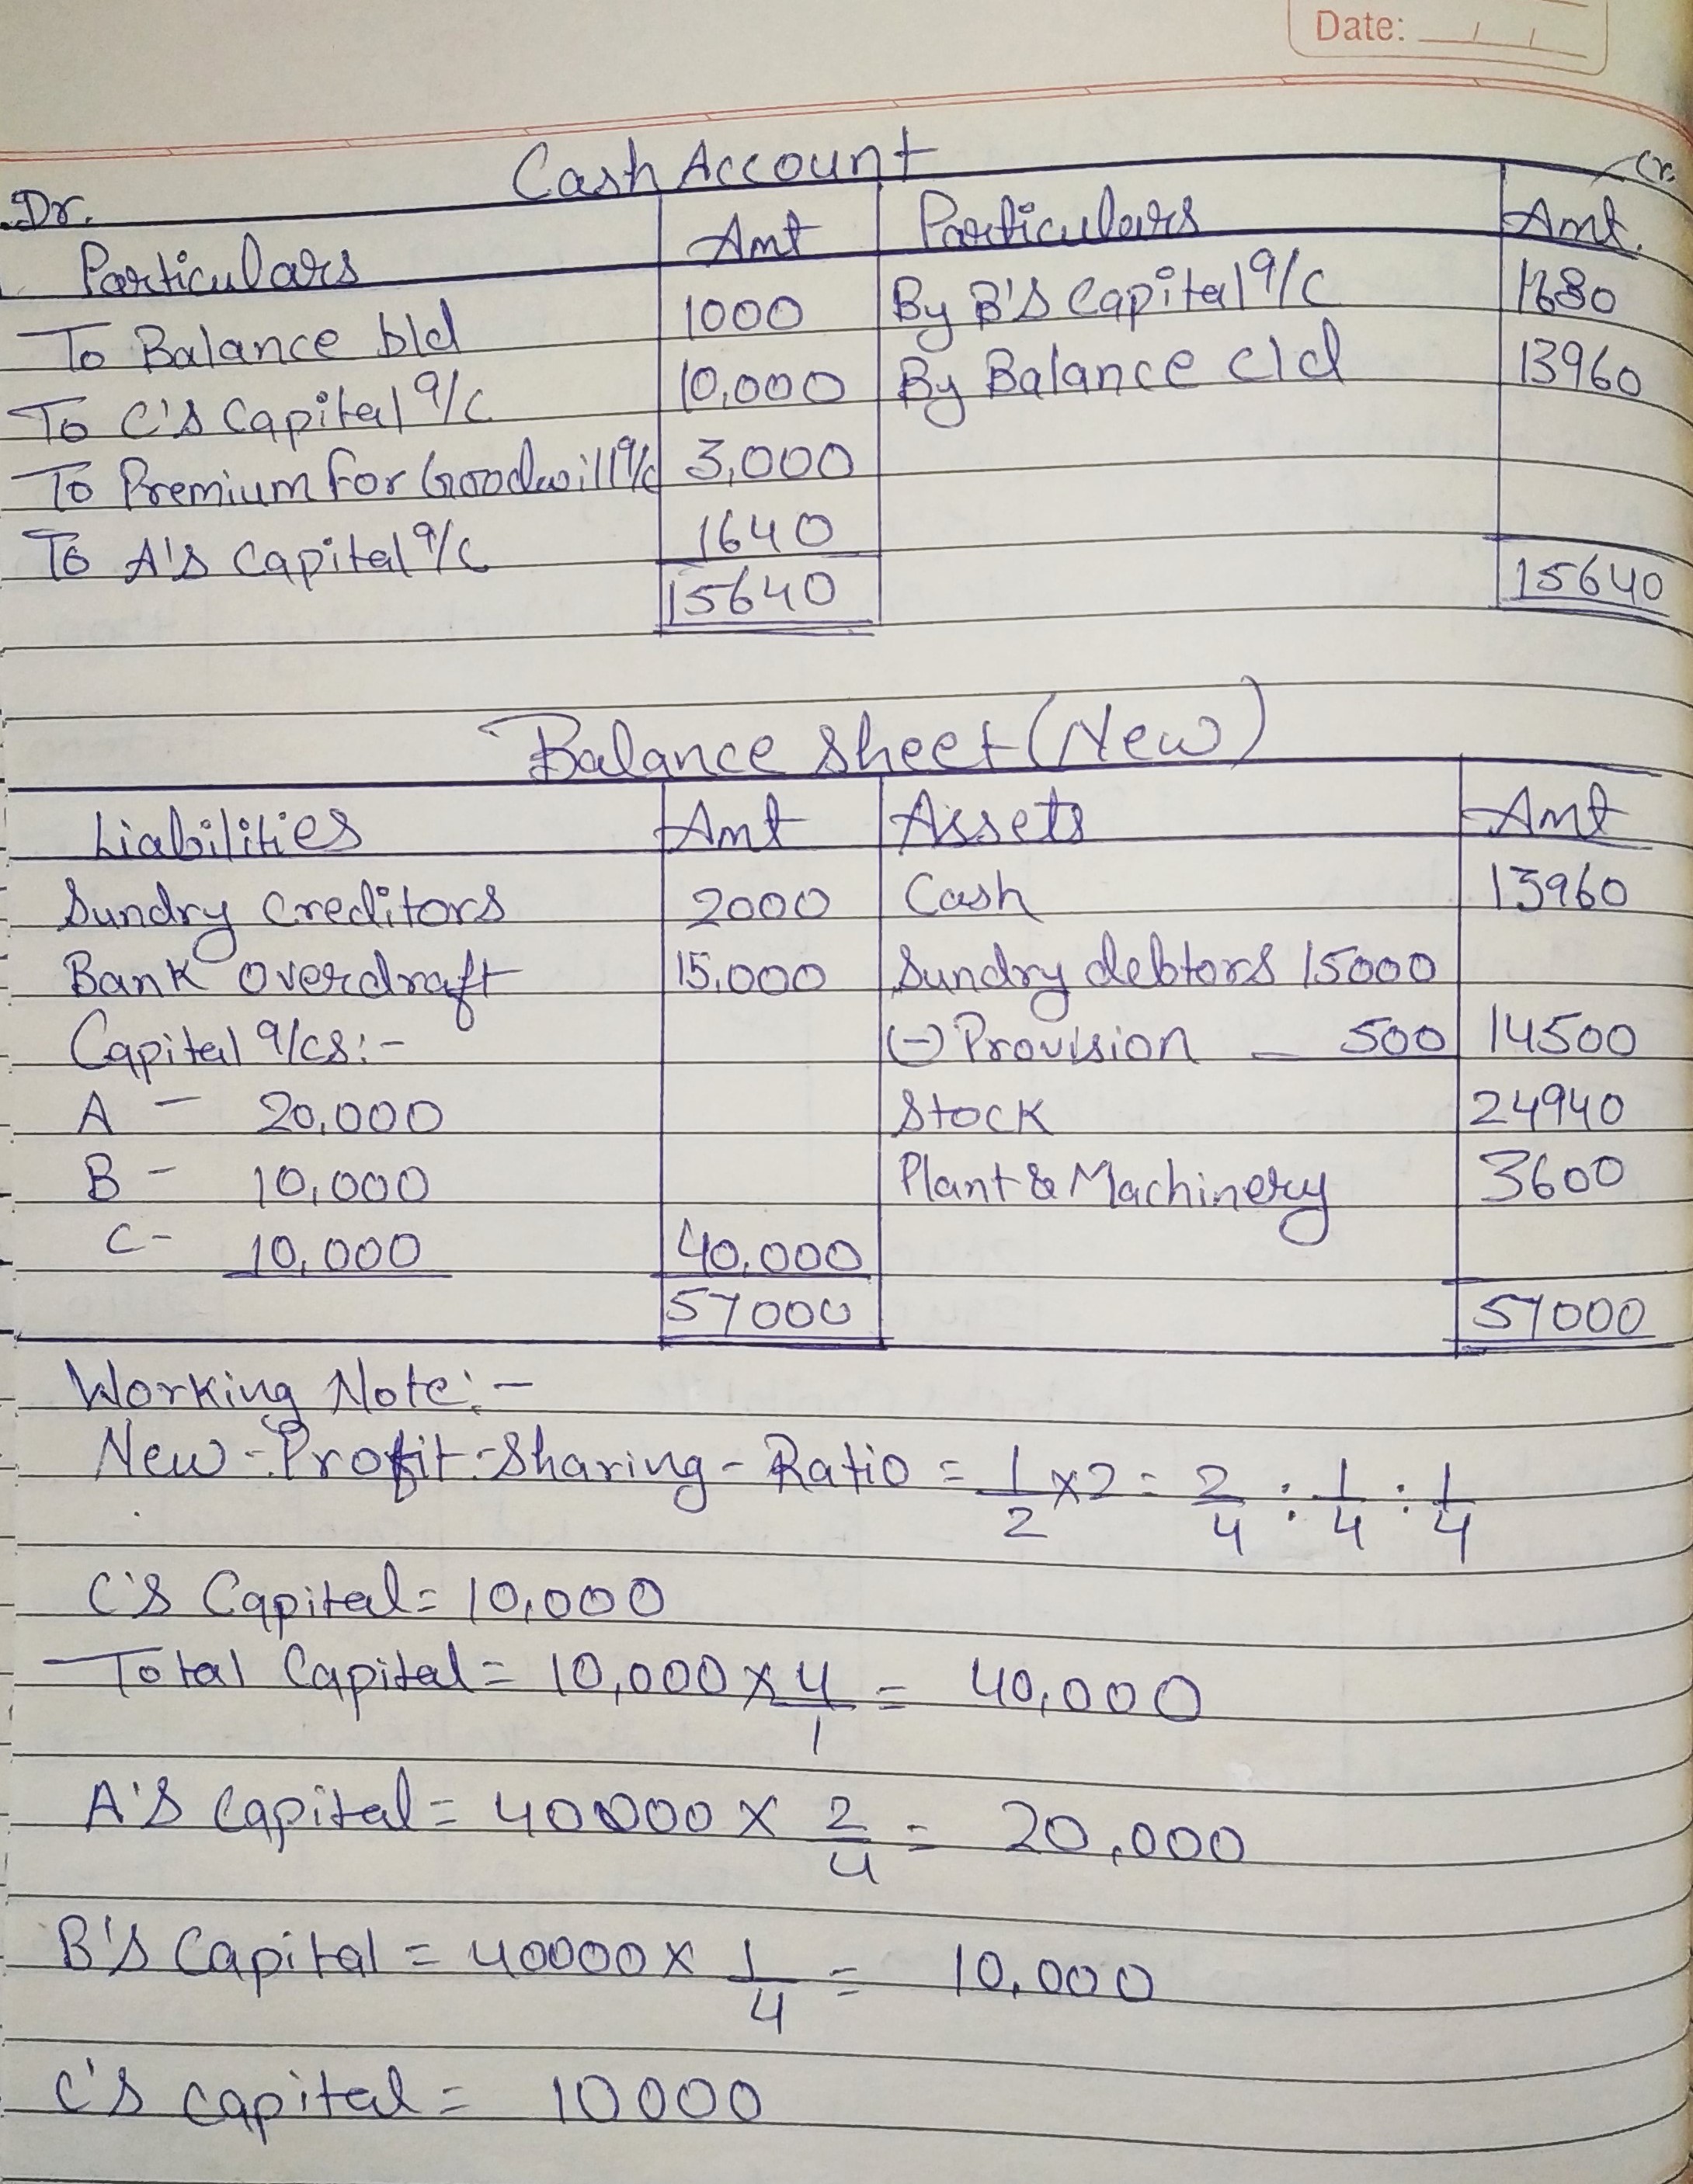 Date: / /
Cash Account
Dr. Cr.
Particulars Amt Particulars Amt.
To Balance b/d 1000 By B's Capital a/c 1680
To C's Capital a/c 10,000 By Balance c/d 13960
To Premium for Goodwill a/c 3,000
To A's Capital a/c 1640
15640 15640
Balance Sheet (New)
Liabilities Amt Assets Amt
Sundry Creditors 2000 Cash 13960
Bank Overdraft 15,000 Sundry debtors 15000
Capital a/cs:- (-) Provision - 500 14500
A - 20,000 Stock 24940
B - 10,000 Plant & Machinery 3600
C - 10,000 40,000
57000 57000
Working Note:-
New-Profit-Sharing-Ratio = 1/2 × 2 = 2/4 : 1/4 : 1/4
C's Capital = 10,000
Total Capital = 10,000 × 4/1 = 40,000
A's Capital = 40000 × 2/4 = 20,000
B's Capital = 40000 × 1/4 = 10,000
C's Capital = 10000